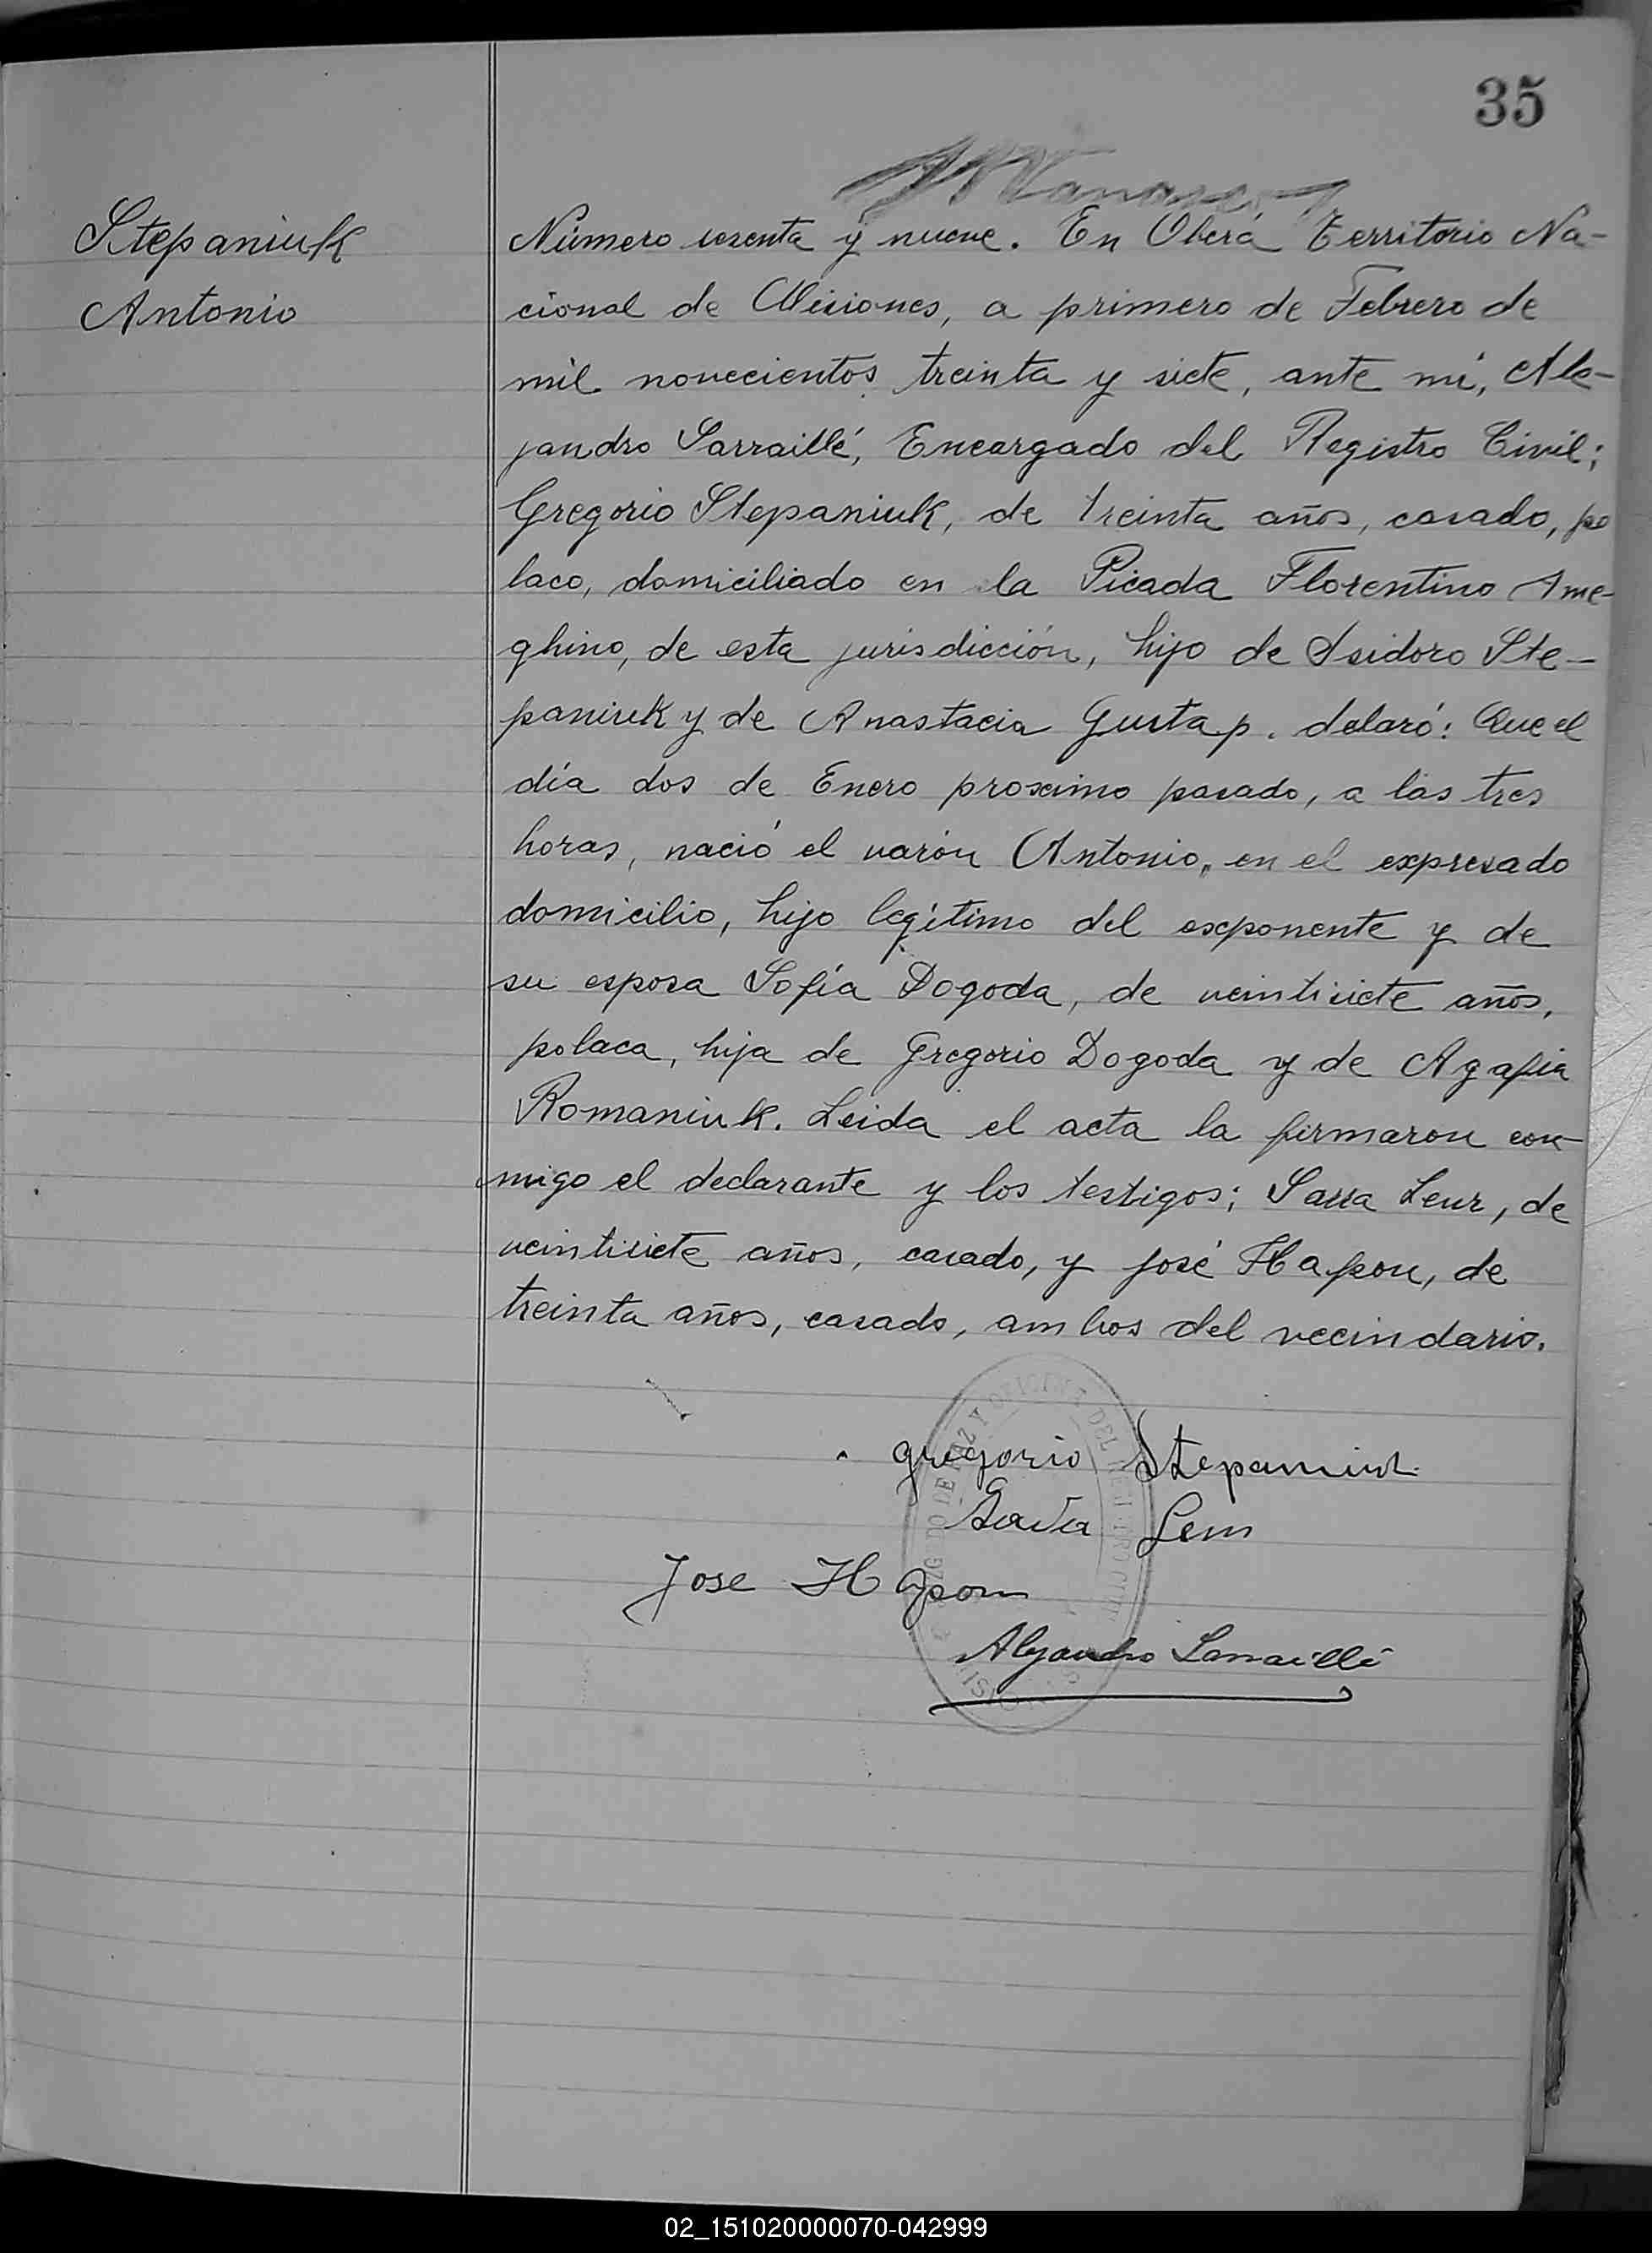 35
Stepaniuk
Antonio
Número sesenta y nueve. En Oberá Territorio Na-
cional de Misiones, a primero de Febrero de
mil novecientos treinta y siete, ante mí, Ale-
jandro Sarraillé, Encargado del Registro Civil;
Gregorio Stepaniuk, de treinta años, casado, po
laco, domiciliado en la Picada Florentino Ame-
ghino, de esta jurisdicción, hijo de Isidoro Ste-
paniuk y de Anastacia Gustap. delaró: Que el
día dos de Enero proximo pasado, a las tres
horas, nació el varón Antonio, en el expresado
domicilio, hijo legítimo del exponente y de
su esposa Sofía Dogoda, de veintisiete años,
polaca, hija de Gregorio Dogoda y de Agafia
Romaniuk. Leida el acta la firmaron con-
migo el declarante y los testigos; Leur, de
veintisiete años, casado, y José Hapon, de
treinta años, casado, ambos del vecindario.
gregorio Stepaniuk
Jose Hapon
Alejandro Sarraillé
02_151020000070-042999